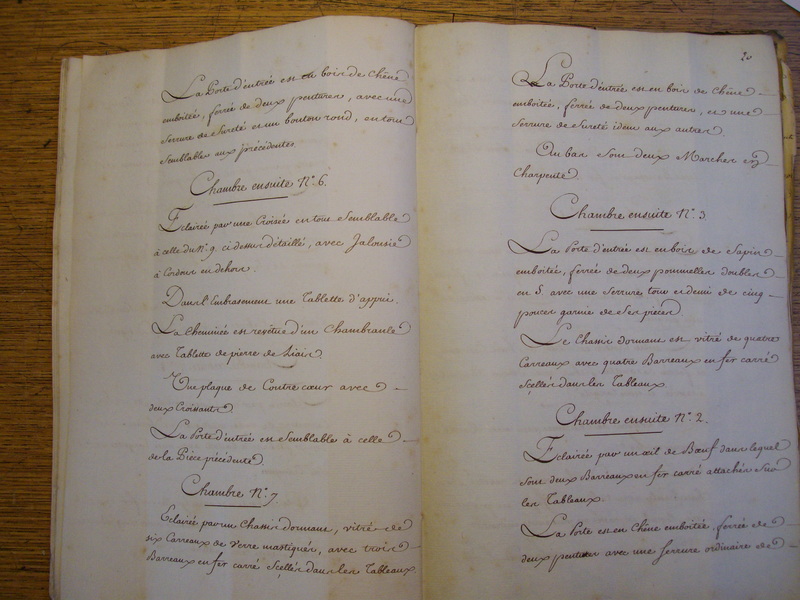 La Porte d'entrée est en bois de Chêne
emboitée, ferrée de deux pentures, avec une
Serrure de Sureté et un bouton rond, en tout
Semblable aux précédentes
Chambre ensuite N.º 6.
Eclairée par une Croisée en tout Semblable
à celle du Nº. 9. ci dessus détaillé, avec Jalousie
à Cordons en dehors.
Dans l'Embrasement une Tablette d'appui.
La Cheminée est revêtue d'un Chambranle
avec Tablette de pierre de Liais
Une plaque de Contre cœur avec
deux Croissants.
La Porte d'entrée est Semblable à celle
de la Pièce précédente.
Chambre N.º 7
Eclairée par un Chassis dormant, vitrée de
six Carreaux de Verre mastiqués, avec trois
Barreaux en fer carré Scellés dans les Tableaux
20
La Porte d'entrée est en bois de Chêne
emboitée, ferrée de deux pentures, et une
Serrure de Sureté idem aux autres.
Au bas Sont deux Marches en
Charpente
Chambre ensuite N.º 3
La Porte d'entrée est en bois de Sapin
emboitée, ferrée de deux pommelles doubles
en S. avec une Serrure tour et demi de cinq
pouces garnie de Ses pièces
Le Chassis dormant est vitré de quatre
Carreaux avec quatre Barreaux en fer carré
Scellés dans les Tableaux
Chambre ensuite N.º 2.
Eclairée par un œil de Bœuf dans lequel
Sont deux Barreaux en fer carré attachés Sur
les Tableaux.
La Porte est en Chêne emboitée, ferrée de
deux pentures avec une Serrure ordinaire de